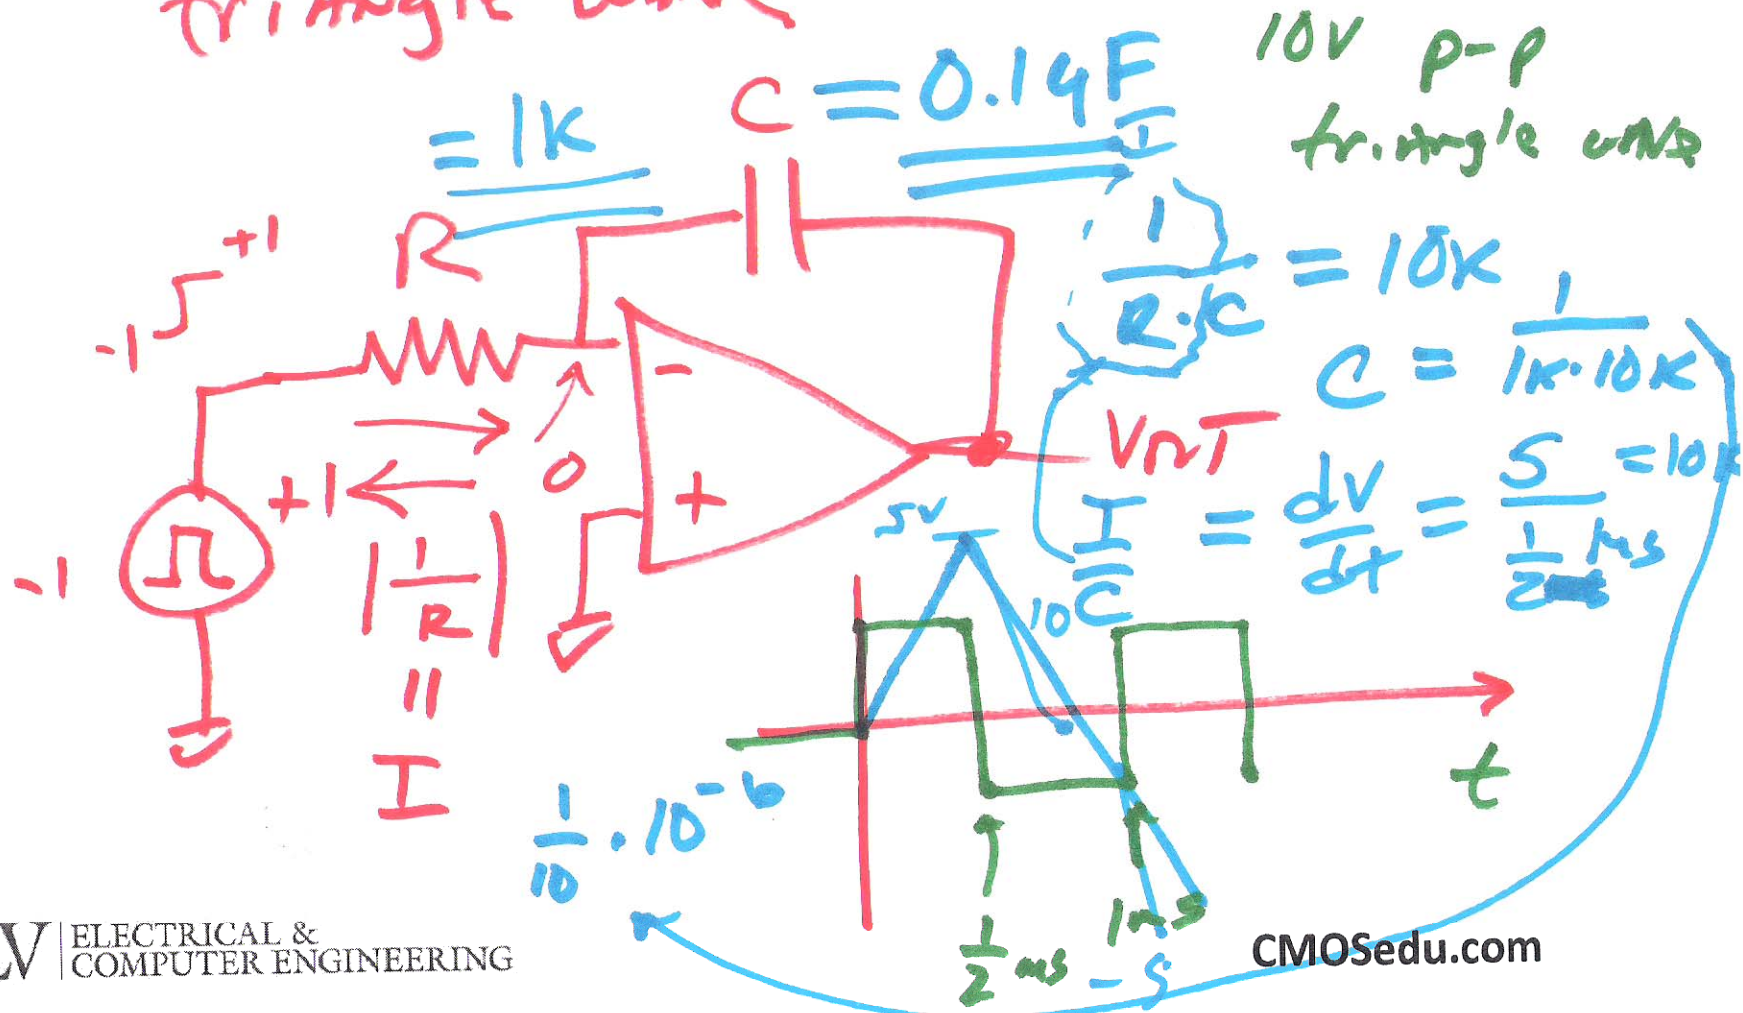 triangle wave
10V P-P
triangle wave
= 1K
C = 0.1µF
R
+1
-1
1/(R·C) = 10K
C = 1/(1K·10K)
-
+
0
VOUT
+1
-1
|1/R|
=
I
I/C = dV/dt = 5/(1/2 ms) = 10K
5V
10
t
1/10 · 10^-6
1/2 ms
1ms
-5
LV | ELECTRICAL &
COMPUTER ENGINEERING
CMOSedu.com